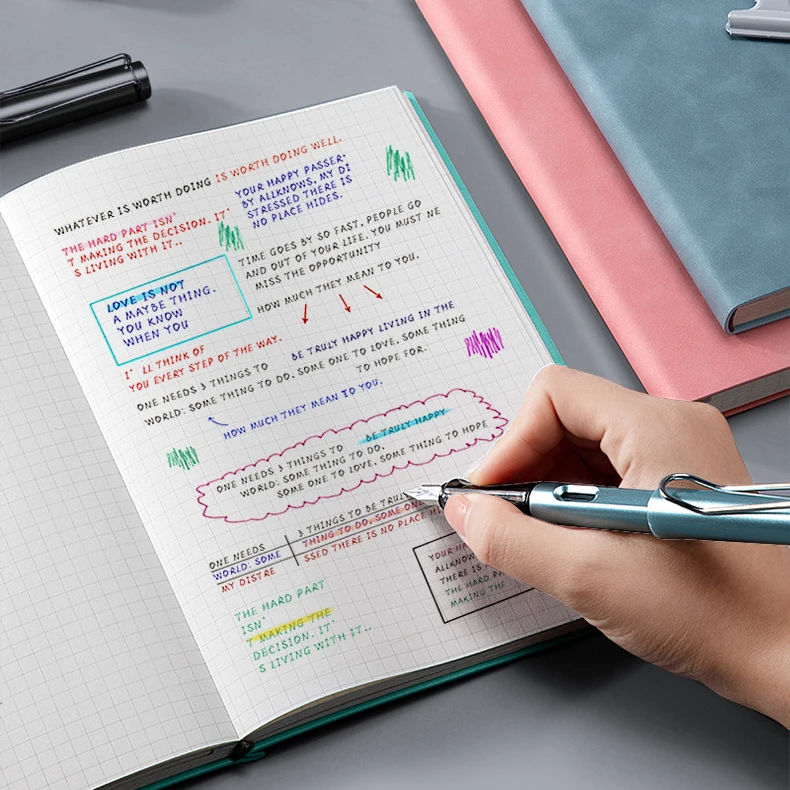 WHATEVER IS WORTH DOING IS WORTH DOING WELL.
THE HARD PART ISN'
T MAKING THE DECISION. IT'
S LIVING WITH IT..
YOUR HAPPY PASSER-
BY ALLKNOWS, MY DI
STRESSED THERE IS
NO PLACE HIDES.
TIME GOES BY SO FAST, PEOPLE GO
AND OUT OF YOUR LIFE. YOU MUST NE
MISS THE OPPORTUNITY
HOW MUCH THEY MEAN TO YOU.
LOVE IS NOT
A MAYBE THING.
YOU KNOW
WHEN YOU
I' LL THINK OF
YOU EVERY STEP OF THE WAY.
BE TRULY HAPPY LIVING IN THE
ONE NEEDS 3 THINGS TO
WORLD: SOME THING TO DO. SOME ONE TO LOVE, SOME THING
TO HOPE FOR.
HOW MUCH THEY MEAN TO YOU.
BE TRULY HAPPY
ONE NEEDS 3 THINGS TO
WORLD: SOME THING TO DO.
SOME ONE TO LOVE, SOME THING TO HOPE
ONE NEEDS 3 THINGS TO BE TRULY
WORLD: SOME THING TO DO. SOME ONE
MY DISTRE SSED THERE IS NO PLACE
YOUR
ALLKNOW
THERE IS
THE HARD PAR
MAKING THE
THE HARD PART
ISN'
T MAKING THE
DECISION. IT'
S LIVING WITH IT..